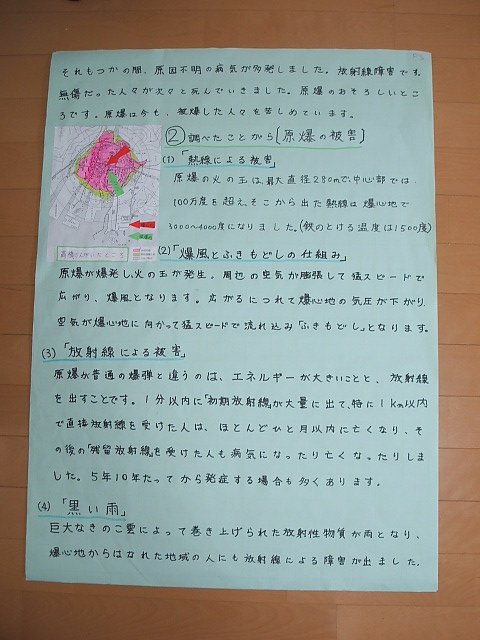 P3
それもつかの間、原因不明の病気が多発しました。放射線障害です。
無傷だった人々が次々と死んでいきました。原爆のおそろしいとこ
ろです。原爆は今も、被爆した人々を苦しめています。
②調べたことがら〔原爆の被害〕
(1)「熱線による被害」
原爆の火の玉は、最大直径280mで、中心部では、
100万度を超え、そこから出た熱線は爆心地で
3000〜4000度になりました。(鉄のとける温度は1500度)
(2)「爆風とふきもどしの仕組み」
原爆が爆発し、火の玉が発生。周辺の空気が膨張して猛スピードで
広がり、爆風となります。広がるにつれて爆心地の気圧が下がり、
空気が爆心地に向かって猛スピードで流れ込み「ふきもどし」となります。
(3)「放射線による被害」
原爆が普通の爆弾と違うのは、エネルギーが大きいことと、放射線
を出すことです。1分以内に「初期放射線」が大量に出て、特に1km以内
で直接放射線を受けた人は、ほとんどひと月以内に亡くなり、そ
の後の「残留放射線」を受けた人も病気になったり亡くなったりしま
した。5年10年たってから発症する場合も多くあります。
(4)「黒い雨」
巨大なきのこ雲によって巻き上げられた放射性物質が雨となり、
爆心地からはなれた地域の人にも放射線による障害が出ました。